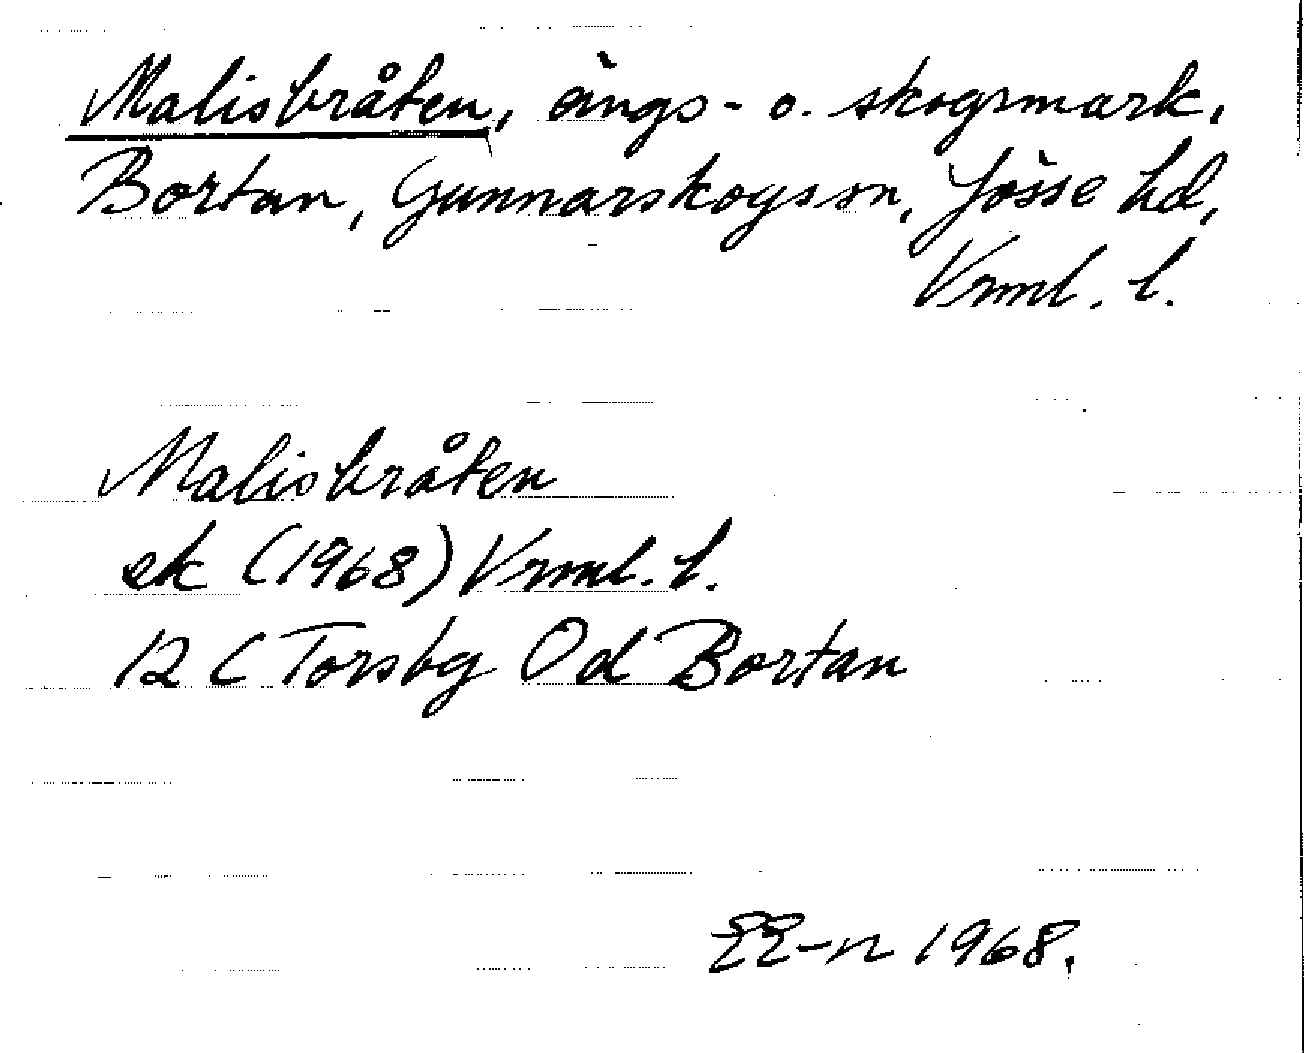 Malisbråten, ängs- o. skogsmark,
Bortan, Gunnarskogs sn, Jösse hd,
Vrml. l.
Malisbråten
ek (1968) Vrml. l.
12 C Torsby Od Bortan
EE-n 1968.